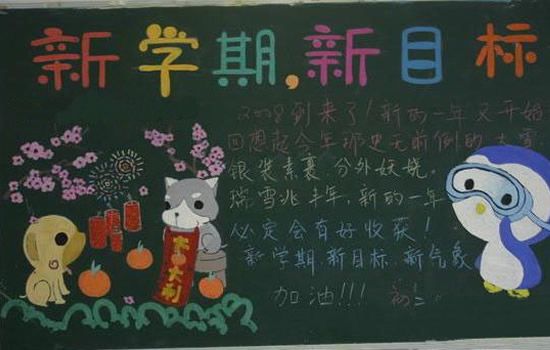 新学期,新目标
2008到来了!新的一年又开始
回想起今年那史无前例的大雪
银装素裹 分外妖娆.
瑞雪兆丰年,新的一年
必定会有好收获!
新学期.新目标.新气象
加油!!!
大吉大利